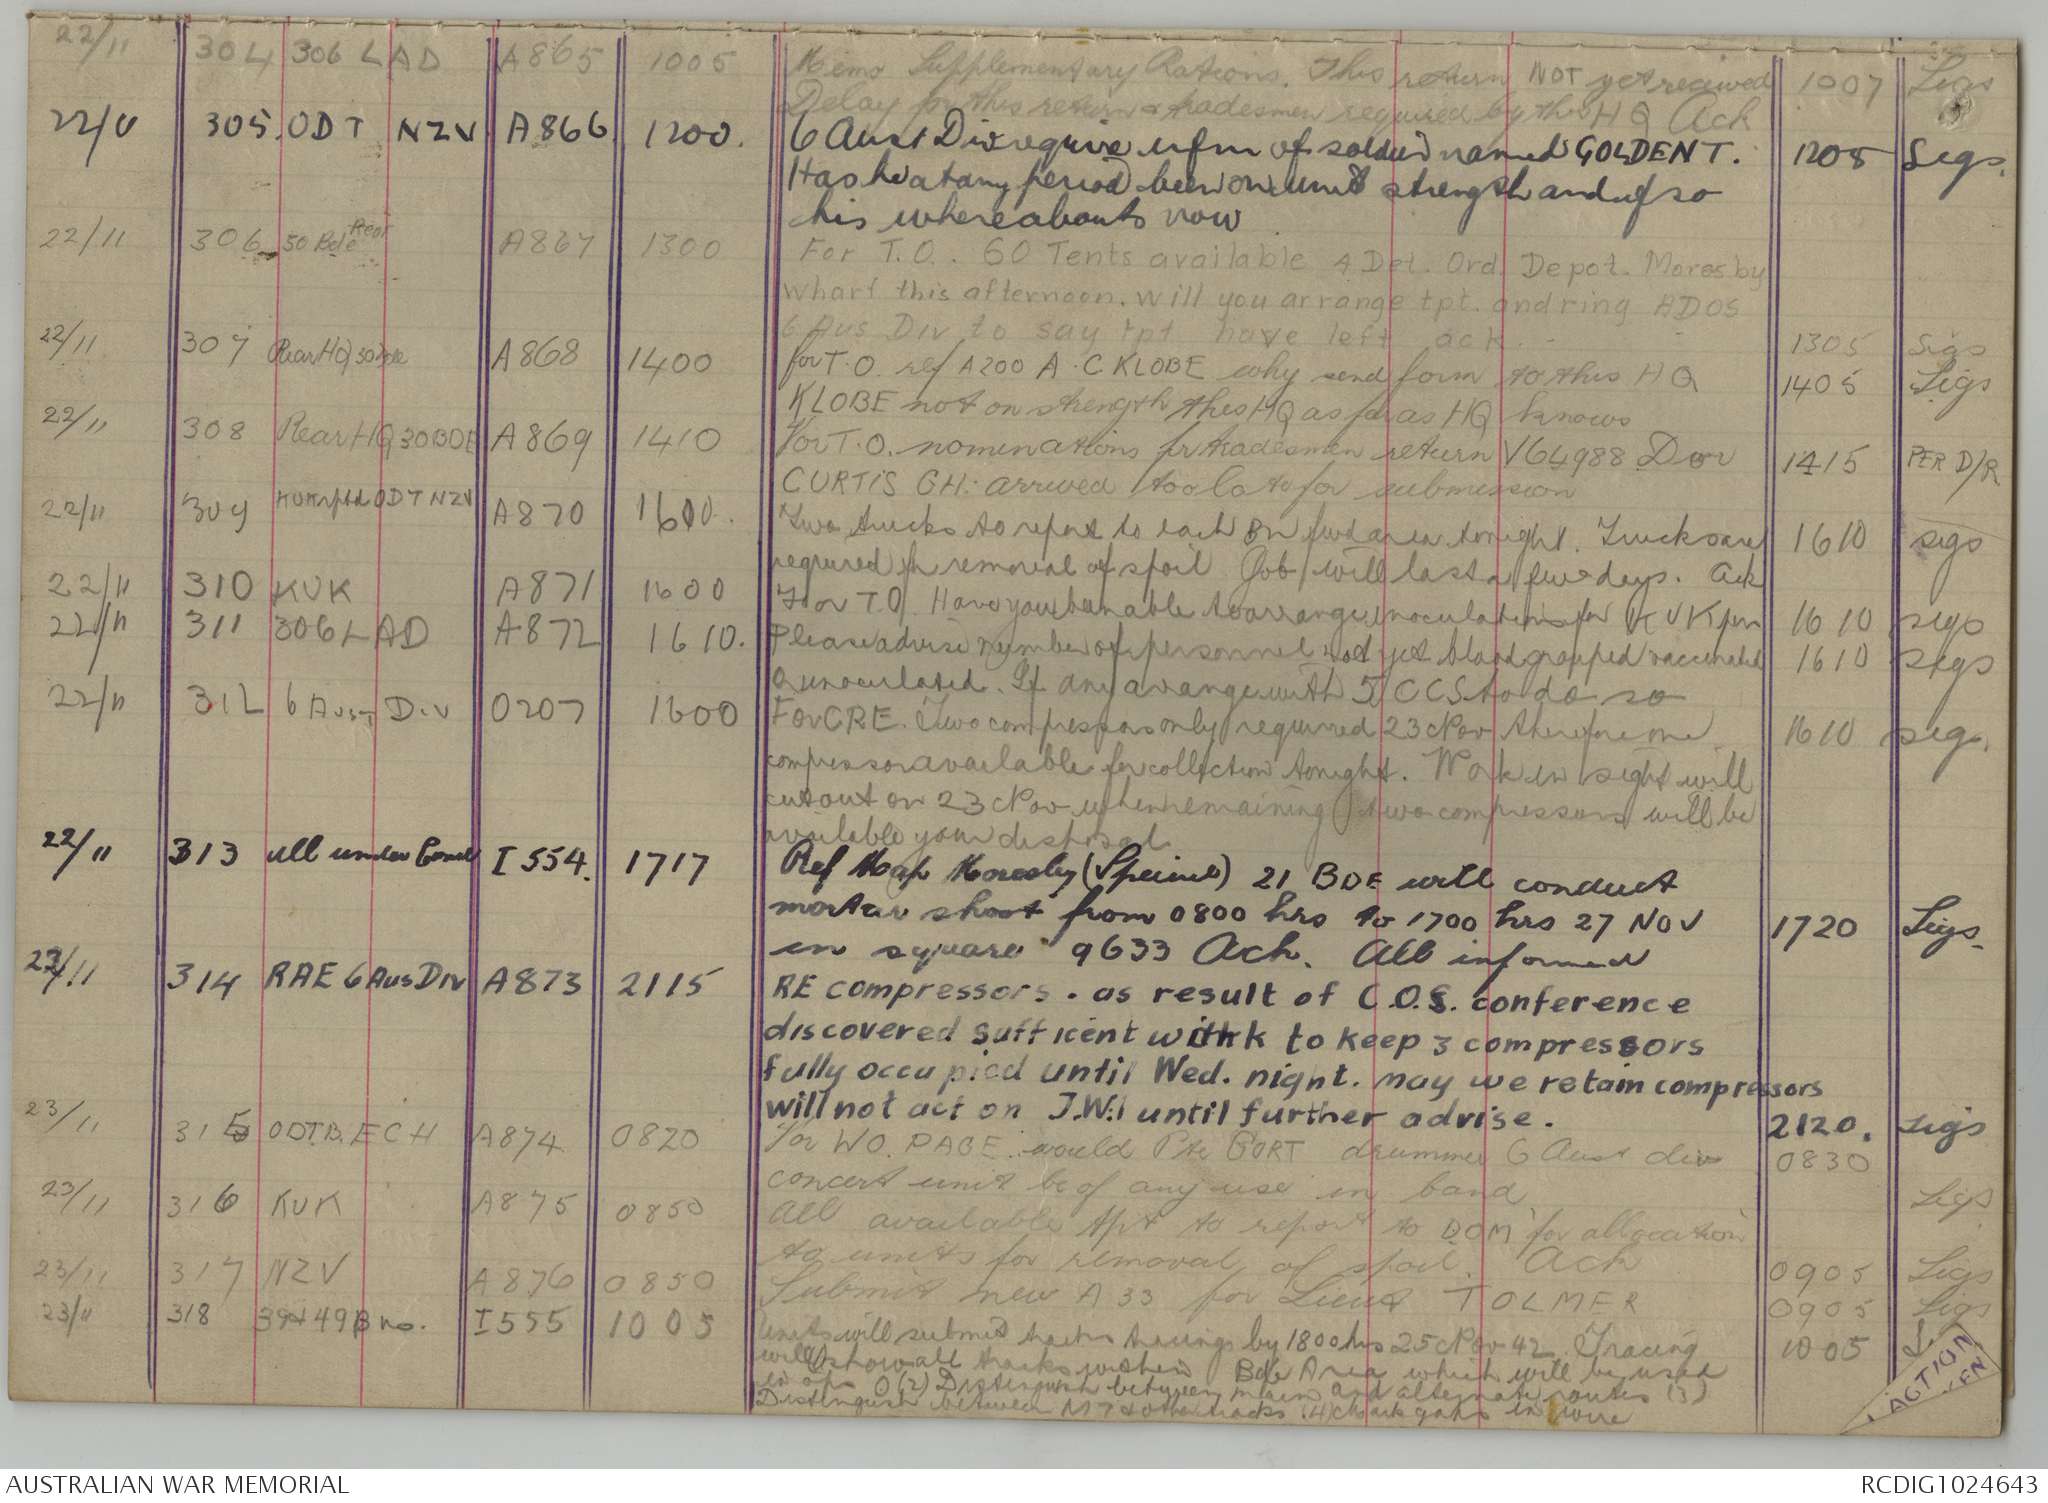 22/11 304 306 LAD A865 1005 Memo Supplementary Rations. This return NOT yet received 1007 Sigs
Delay for this return & tradesmen required by this HQ Ack
22/11 305. ODT NZV A866 1200. 6 Aust Div require infm of soldier named GOLDEN T. 1205 Sigs.
Has he at any period been on unit strength and if so
his whereabouts now
22/11 306 30 Bde Rear A867 1300 For T.O. 60 Tents available 4 Det. Ord. Depot. Moresby
wharf this afternoon. Will you arrange tpt. and ring ADOS
6 Aus Div to say tpt have left ack. 1305 Sigs
22/11 307 Rear HQ 30 Bde A868 1400 for T.O. ref A200 A.C KLOBE why send form to this HQ 1405 Sigs
KLOBE not on strength this HQ as far as HQ knows
22/11 308 Rear HQ 30 BDE A869 1410 For T.O. nominations for tradesmen return V64988 Dvr 1415 PER D/R
CURTIS GH. arrived too late for submission
22/11 309 KUK ODT NZV A870 1600. Two trucks to report to each Bn fwd area tonight. Trucks are 1610 sigs
required for removal of spoil Job will last a few days. Ack
22/11 310 KUK A871 1600 For T.O. Have you been able to arrange inoculations for KUK pm 1610 sigs
22/11 311 306 LAD A872 1610. Please advise number of personnel not yet blood grouped vaccinated 1610 sigs
& inoculated. If any arrange with 5 CCS to do so
22/11 312 6 Aust Div O207 1600 For CRE. Two compressors only required 23 Nov therefore one 1610 sigs.
compressor available for collection tonight. Work in sight will
cut out on 23 Nov when remaining two compressors will be
available your disposal.
22/11 313 all under Comd I 554. 1717 Ref Map Moresby (Special) 21 BDE will conduct
mortar shoot from 0800 hrs to 1700 hrs 27 NOV 1720 Sigs.
in square 9633 Ack. All informed
22/11 314 RAE 6 Aus Div A873 2115 RE compressors. as result of C.O.S. conference
discovered sufficent work to keep 3 compressors
fully occupied until Wed. night. may we retain compressors
will not act on J.W.1 until further advise. 2120. Sigs
23/11 315 ODT B. ECH A874 0820 For WO. PAGE. would Pte GORT drummer 6 Aust div 0830
concert unit be of any use in band Sigs
23/11 316 KUK A875 0850 All available tpt to report to DOM for allocation
to units for removal of spoil. Ack 0905 Sigs
23/11 317 NZV A876 0850 Submit new A 33 for Lieut TOLMER 0905 Sigs
23/11 318 39 & 49 Bns. I555 1005 Units will submit tracks tracings by 1800 hrs 25 Nov 42. Tracing 1005
will show all tracks within Bde Area which will be used
in ops (2) Distinguish between main and alternate routes (3)
Distinguish between MT & other tracks (4) Mark gaps in wire
ACTION
AUSTRALIAN WAR MEMORIAL RCDIG1024643